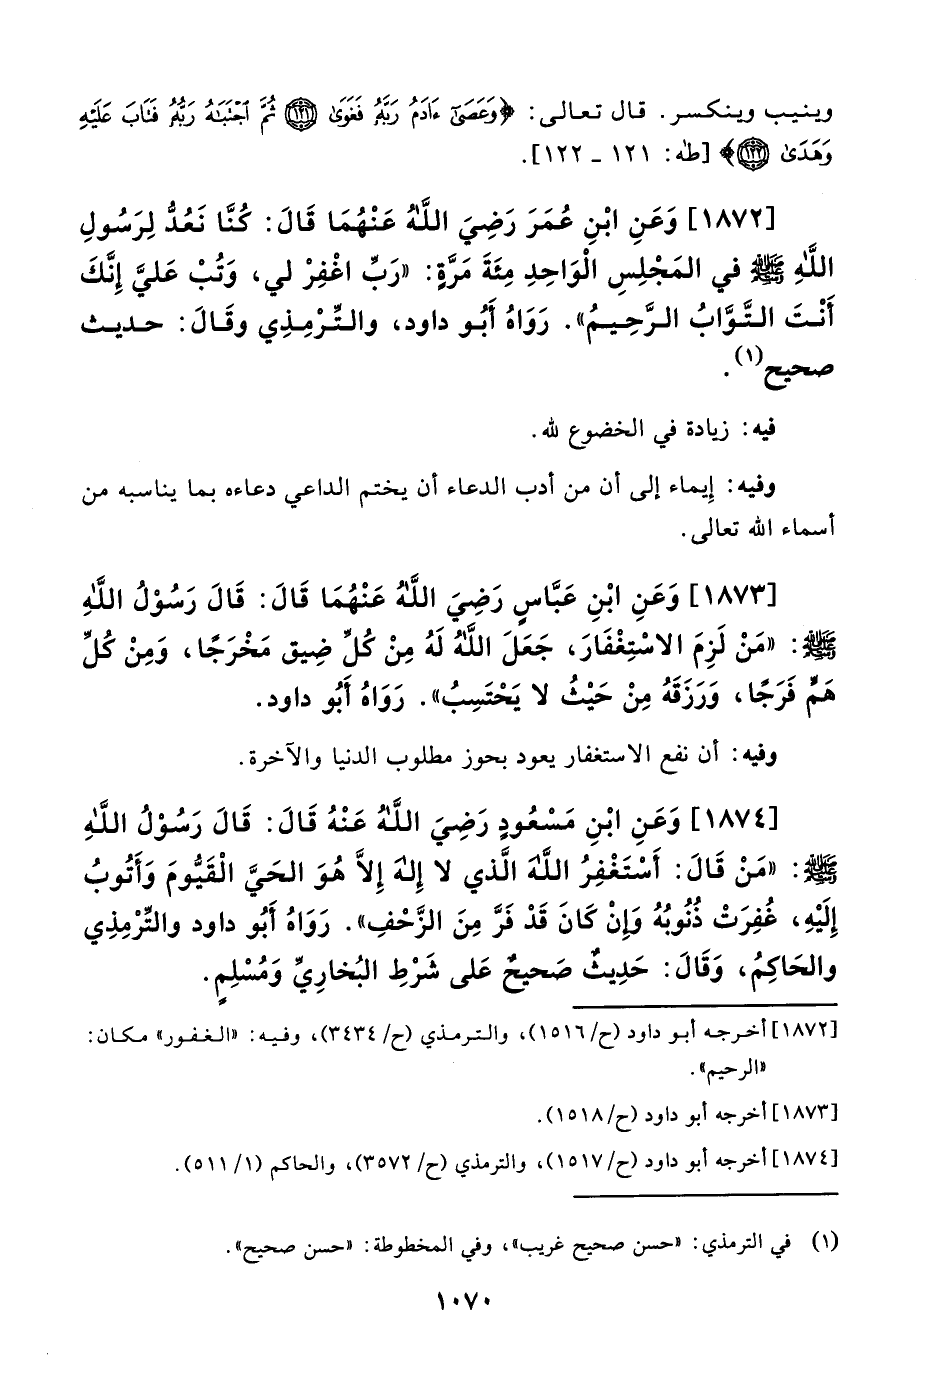 وينيب وينكسر. قال تعالى: ﴿وَعَصَىٰٓ ءَادَمُ رَبَّهُۥ فَغَوَىٰ ۝١٢١ ثُمَّ ٱجۡتَبَٰهُ رَبُّهُۥ فَتَابَ عَلَيۡهِ
وَهَدَىٰ ۝١٢٢﴾ [طه: ١٢١ ـ ١٢٢].
[١٨٧٢] وَعَنِ ابْنِ عُمَرَ رَضِيَ اللَّهُ عَنْهُمَا قَالَ: كُنَّا نَعُدُّ لِرَسُولِ
اللَّهِ ﷺ في المَجْلِسِ الْوَاحِدِ مِئَةَ مَرَّةٍ: «رَبِّ اغْفِرْ لي، وَتُبْ عَليَّ إِنَّكَ
أَنْتَ التَّوَّابُ الرَّحِيمُ». رَوَاهُ أَبُو داود، والتِّرْمِذِي وقَالَ: حديث
صحيح(١).
فيه: زيادة في الخضوع لله.
وفيه: إيماء إلى أن من أدب الدعاء أن يختم الداعي دعاءه بما يناسبه من
أسماء الله تعالى.
[١٨٧٣] وَعَنِ ابْنِ عَبَّاسٍ رَضِيَ اللَّهُ عَنْهُمَا قَالَ: قَالَ رَسُوْلُ اللَّهِ
ﷺ: «مَنْ لَزِمَ الاسْتِغْفَارَ، جَعَلَ اللَّهُ لَهُ مِنْ كُلِّ ضِيق مَخْرَجًا، وَمِنْ كُلِّ
هَمٍّ فَرَجًا، وَرَزَقَهُ مِنْ حَيْثُ لا يَحْتَسِبُ». رَوَاهُ أَبُو داود.
وفيه: أن نفع الاستغفار يعود بحوز مطلوب الدنيا والآخرة.
[١٨٧٤] وَعَنِ ابْنِ مَسْعُودٍ رَضِيَ اللَّهُ عَنْهُ قَالَ: قَالَ رَسُوْلُ اللَّهِ
ﷺ: «مَنْ قَالَ: أَسْتَغْفِرُ اللَّهَ الَّذي لا إِلهَ إِلاَّ هُوَ الحَيَّ الْقَيُّومَ وَأَتُوبُ
إِلَيْهِ، غُفِرَتْ ذُنُوبُهُ وَإِنْ كَانَ قَدْ فَرَّ مِنَ الزَّحْفِ». رَوَاهُ أَبُو داود والتِّرْمِذِي
والحَاكِمُ، وَقَالَ: حَدِيثٌ صَحيحٌ عَلى شَرْطِ البُخَارِيِّ وَمُسْلِمٍ.
[١٨٧٢] أخرجه أبو داود (ح/١٥١٦)، والترمذي (ح/٣٤٣٤)، وفيه: «الغفور» مكان:
«الرحيم».
[١٨٧٣] أخرجه أبو داود (ح/١٥١٨).
[١٨٧٤] أخرجه أبو داود (ح/١٥١٧)، والترمذي (ح/٣٥٧٢)، والحاكم (١/٥١١).
(١) في الترمذي: «حسن صحيح غريب»، وفي المخطوطة: «حسن صحيح».
١٠٧٠